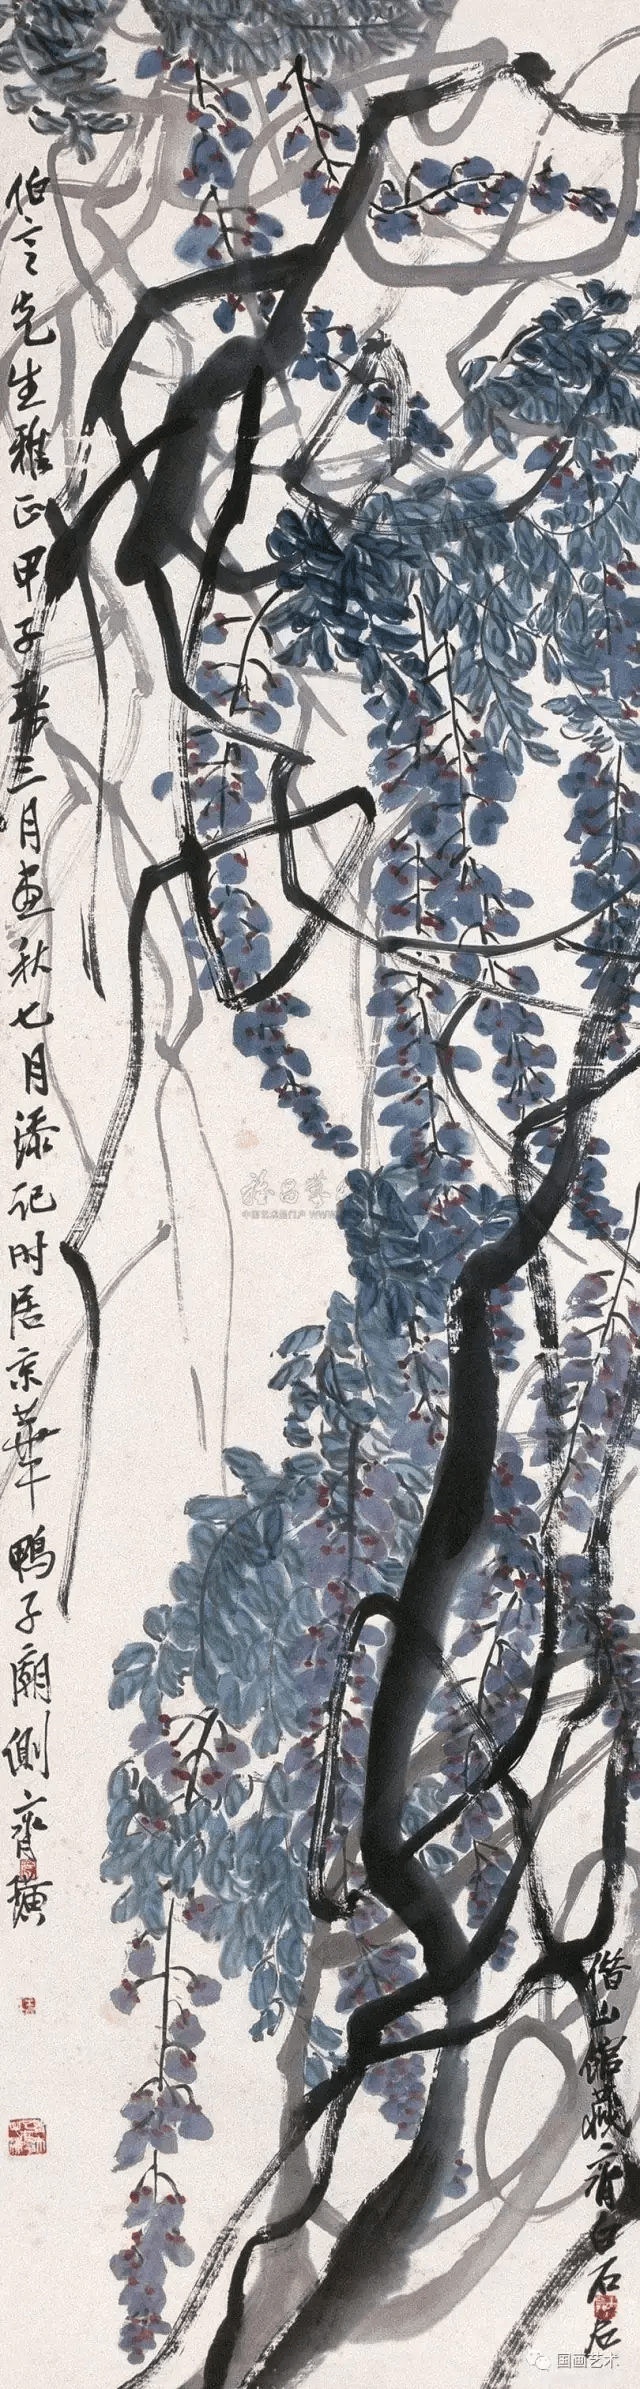 伯言先生雅正甲子春三月画秋七月添記时居京華鴨子廟側齊璜
借山館藏齊白石
中国艺术品门户 WWW.
国画艺术